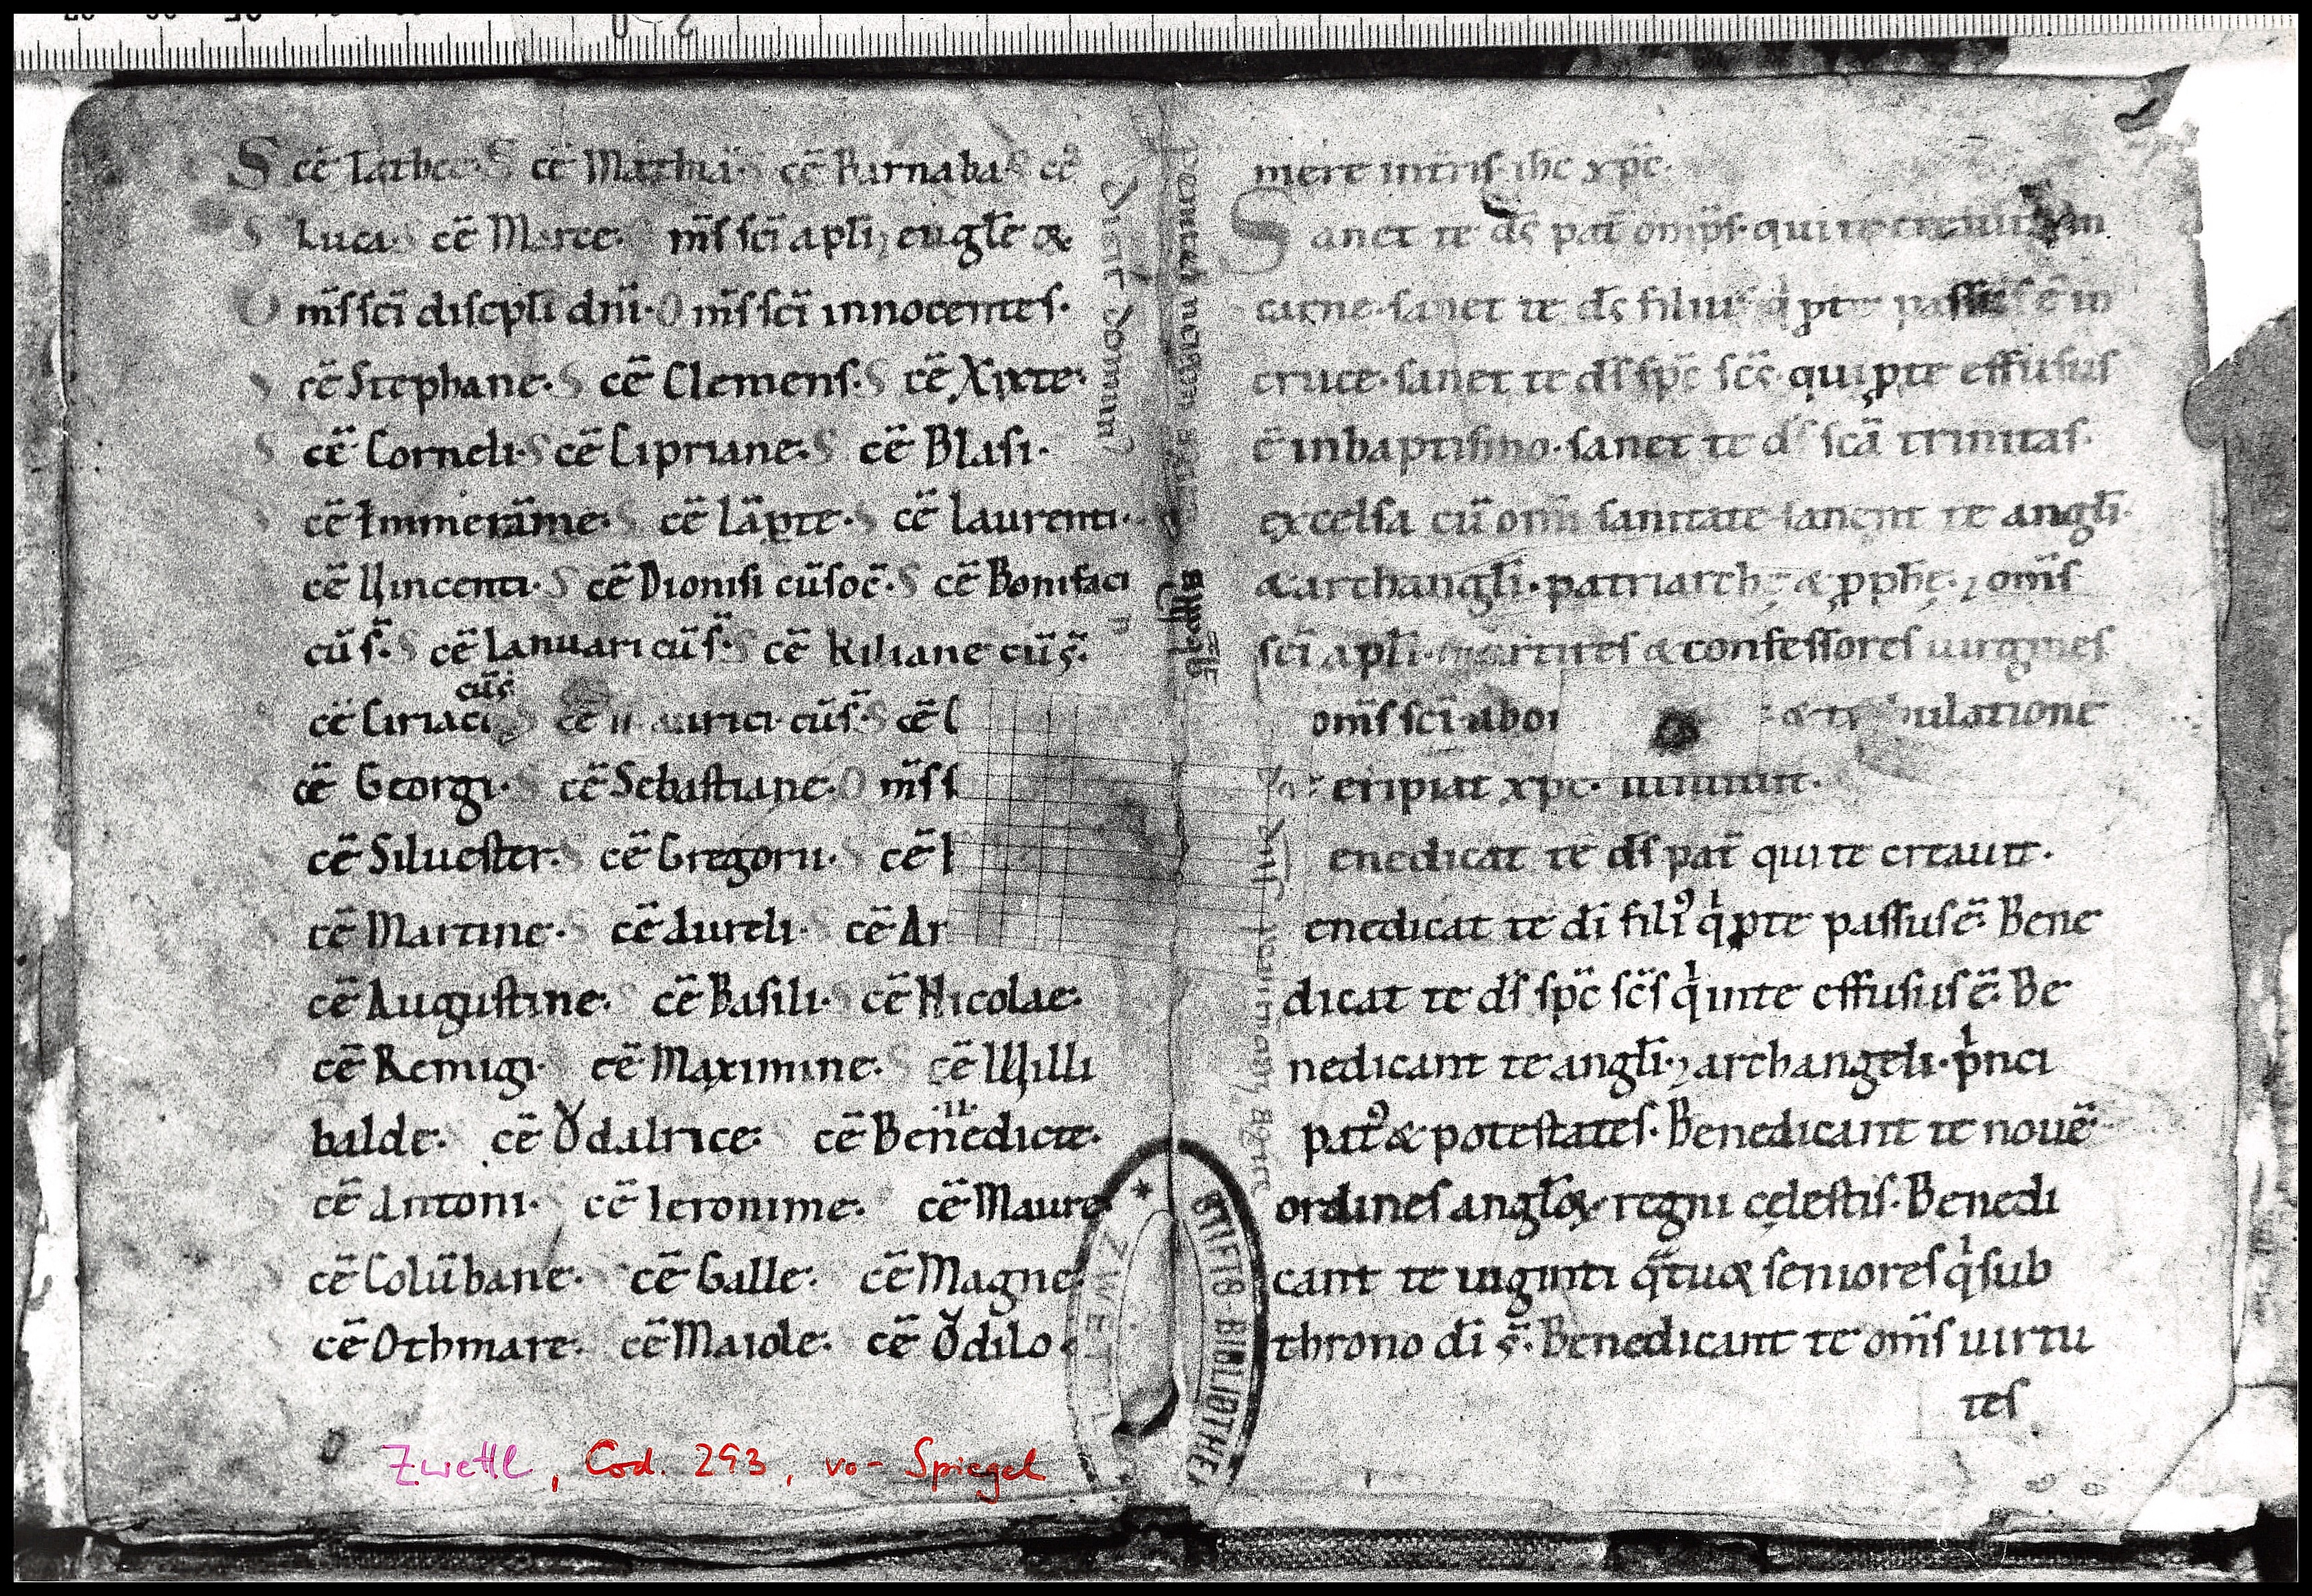 S cē Tathee. S cē Mathia. S cē Barnaba. S cē
S Luca. S cē Marce. O m̄s sc̄i apl̄i ⁊ eugl̄e &
O m̄s sc̄i discpl̄i dn̄i. O m̄s sc̄i innocentes.
S cē Stephane. S cē Clemens. S cē Xixte.
S cē Corneli. S cē Cipriane. S cē Blasi.
S cē Emmerāme. S cē Lāpte. S cē Laurenti.
cē Vincenti. S cē Dionisi cū soc̄. S cē Bonifaci
cū s̄. S cē Ianuari cū s̄. S cē Kiliane cū s̄.
cū s̄
cē Ciriaci S cē Maurici cū s̄. S cē
cē Georgi. S cē Sebastiane. O m̄s s
cē Siluester. S cē Gregorii. S cē
cē Martine. S cē Aureli. S cē
cē Augustine. S cē Basili. S cē Nicolae.
cē Remigi. S cē Maximine. S cē Willi
balde. cē Vͦdalrice. cē Benedicte.
cē Antoni. cē Ieronime. cē Maure
cē Colūbane. cē Galle. cē Magne.
cē Othmare. cē Maiole. cē Odilo
mere intr̄is ih̄c xp̄c.
Sanct te d̄s pat̄ om̄ps. qui te creauit in
carne. sanct te d̄s filius q̇ ꝓ te passus ē in
cruce. sanct te d̄s sp̄c sc̄s. qui ꝓ te effusus
ē in baptismo. sanct te d̄s sc̄a trinitas.
excelsa cū om̄i sanitate sancn̄t te angl̄i.
& archangl̄i. patriarchę & ꝓph̄ę. ⁊ om̄s
sc̄i apl̄i. martires & confessores uirgines
om̄s sc̄i. & bulatione
eripiat xp̄c.
enedicat te d̄s pat̄ qui te creauit.
enedicat te d̄i filiꝰ q̇ ꝓ te passus ē. Bene
dicat te d̄s sp̄c sc̄s q̇ in te effusus ē. Be
nedicant te angl̄i. ⁊ archangeli. p̍nci
patꝰ & potestates. Benedicant te nouē
ordines angl̄oꝝ regni cęlestis. Benedi
cant te uiginti q̄tuoꝝ seniores q̇ sub
throno d̄i s̄. Benedicant te om̄s uirtu
tes
STIFTS-BIBLIOTHEK
ZWETTL
Zwettl, Cod. 293, vo-Spiegel